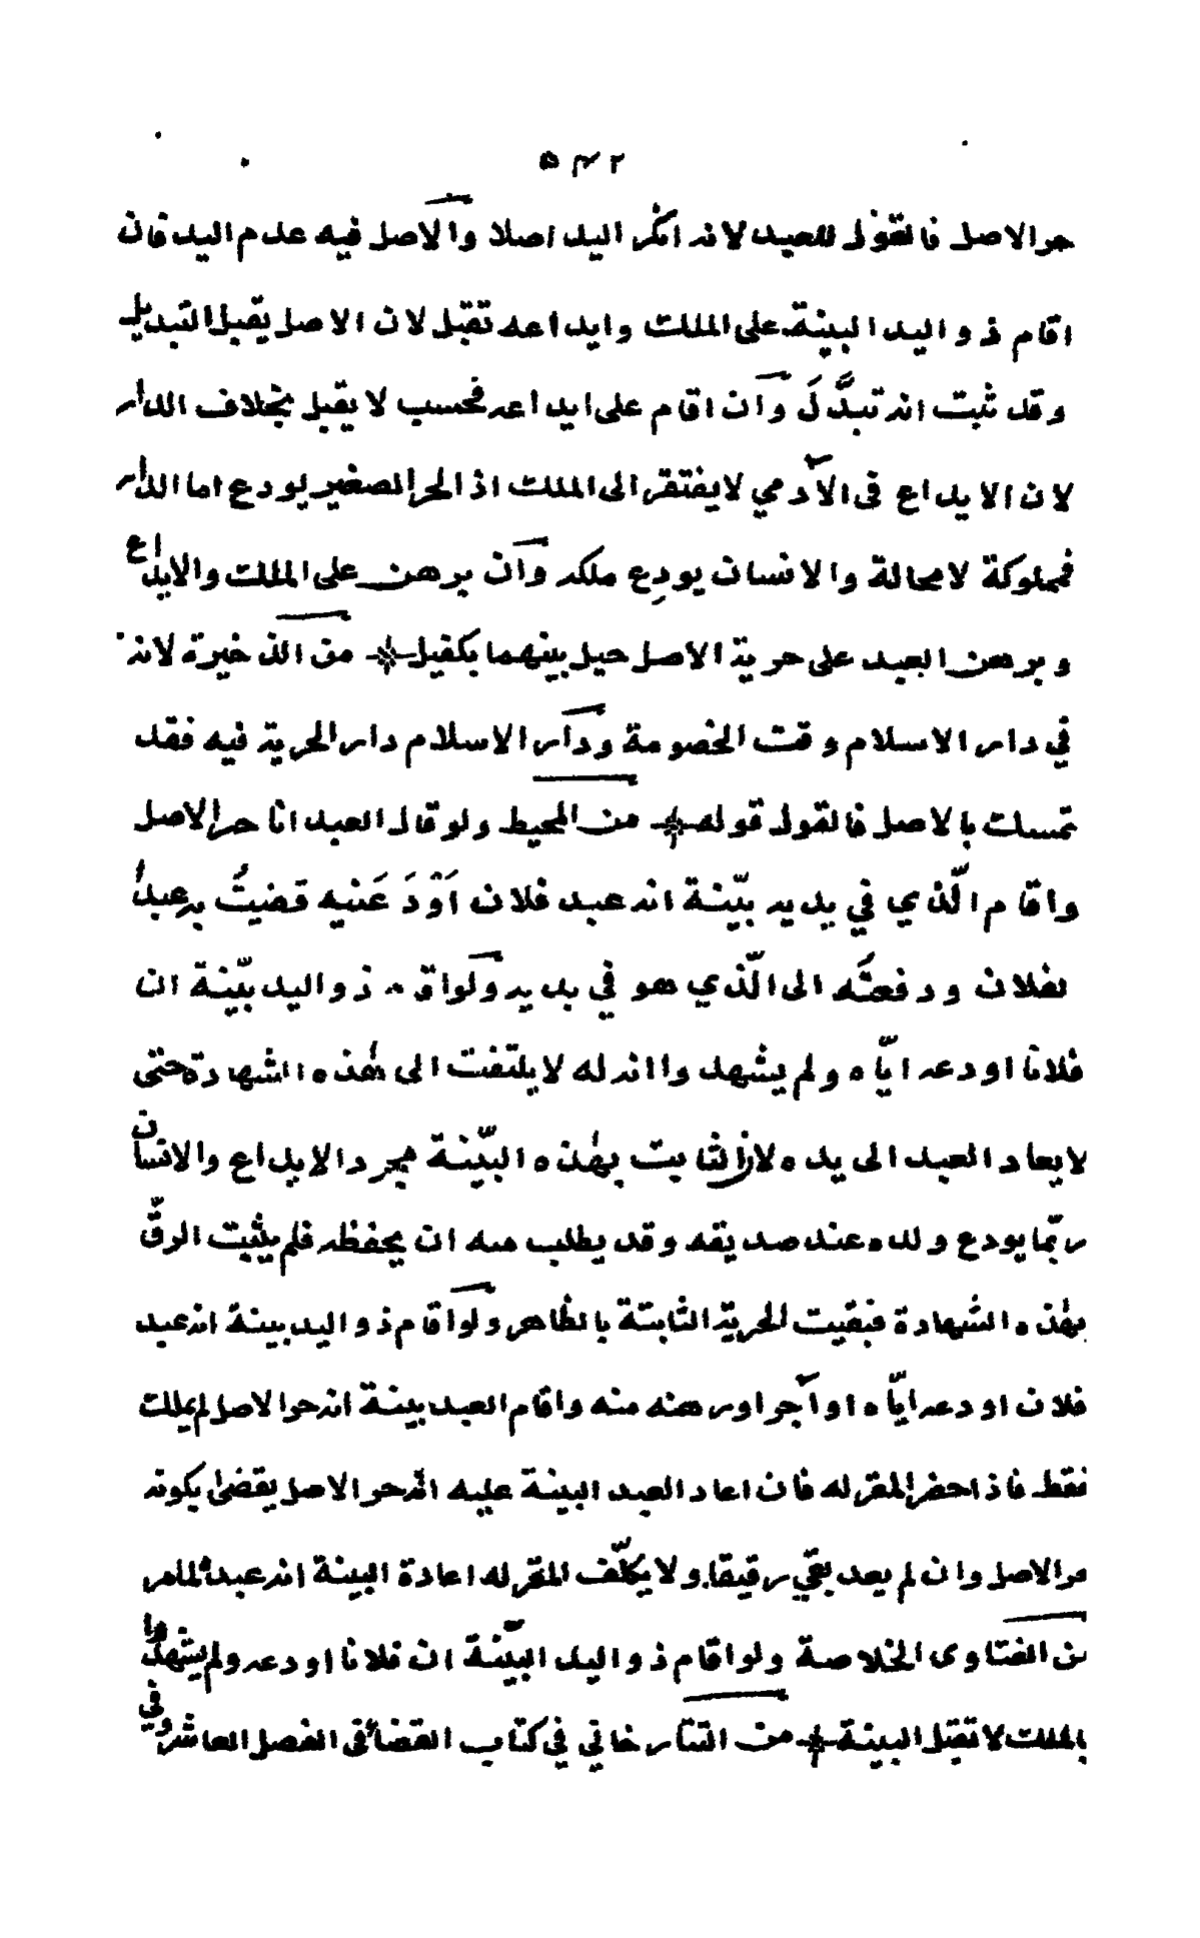 ٥٤٢
حر الاصل فالقول للعبد لانه انكر اليد اصلا والاصل فيه عدم اليد فان
اقام ذو اليد البينة على الملك وايداعه تقبل لان الاصل يقبل التبديل
وقد ثبت انه تبدَّلَ وان اقام على ايداعه فحسب لا يقبل بخلاف الدار
لان الايداع فى الآدمي لا يفتقر الى الملك اذ الحر الصغير يودع اما الدار
فمملوكة لا محالة والانسان يودِع ملكه وان برهن على الملك والايداع
وبرهن العبد على حرية الاصل حيل بينهما بكفيل من الذخيرة لانه
في دار الاسلام وقت الخصومة ودار الاسلام دار الحرية فيه فقد
تمسك بالاصل فالقول قوله من المحيط ولو قال العبد انا حر الاصل
واقام الّذي في يديه بيّنة انه عبد فلان اَوْدَعَنيه قضيتُ به عبدا
لفلان ودفعتُه الى الّذي هو في يديه ولو اقام ذو اليد بيّنة ان
فلانا اودعه ايّاه ولم يشهدوا انه له لا يلتفت الى هٰذه الشهادة حتى
لا يعاد العبد الى يده لان الثابت بهٰذه البيّنة مجرد الايداع والانسان
ربّما يودع ولده عند صديقه وقد يطلب منه ان يحفظه فلم يثبت الرقّ
بهٰذه الشهادة فبقيت الحريّة الثابتة بالظاهر ولو اقام ذو اليد بينة انه عبد
فلان اودعه ايّاه او آجر او رهنه منه واقام العبد بينة انه حر الاصل لم يملك
فقط فاذا حضر المقر له فان اعاد العبد البينة عليه انّه حر الاصل يقضى بكونه
حر الاصل وان لم يعد بقي رقيقا ولا يكلّف المقر له اعادة البينة انه عبده لما مر
من الفتاوى الخلاصة ولو اقام ذو اليد البيّنة ان فلانا اودعه ولم يشهدوا
بالملك لا تقبل البينة من التتارخاني في كتاب القضاء فى الفصل العاشر وفي